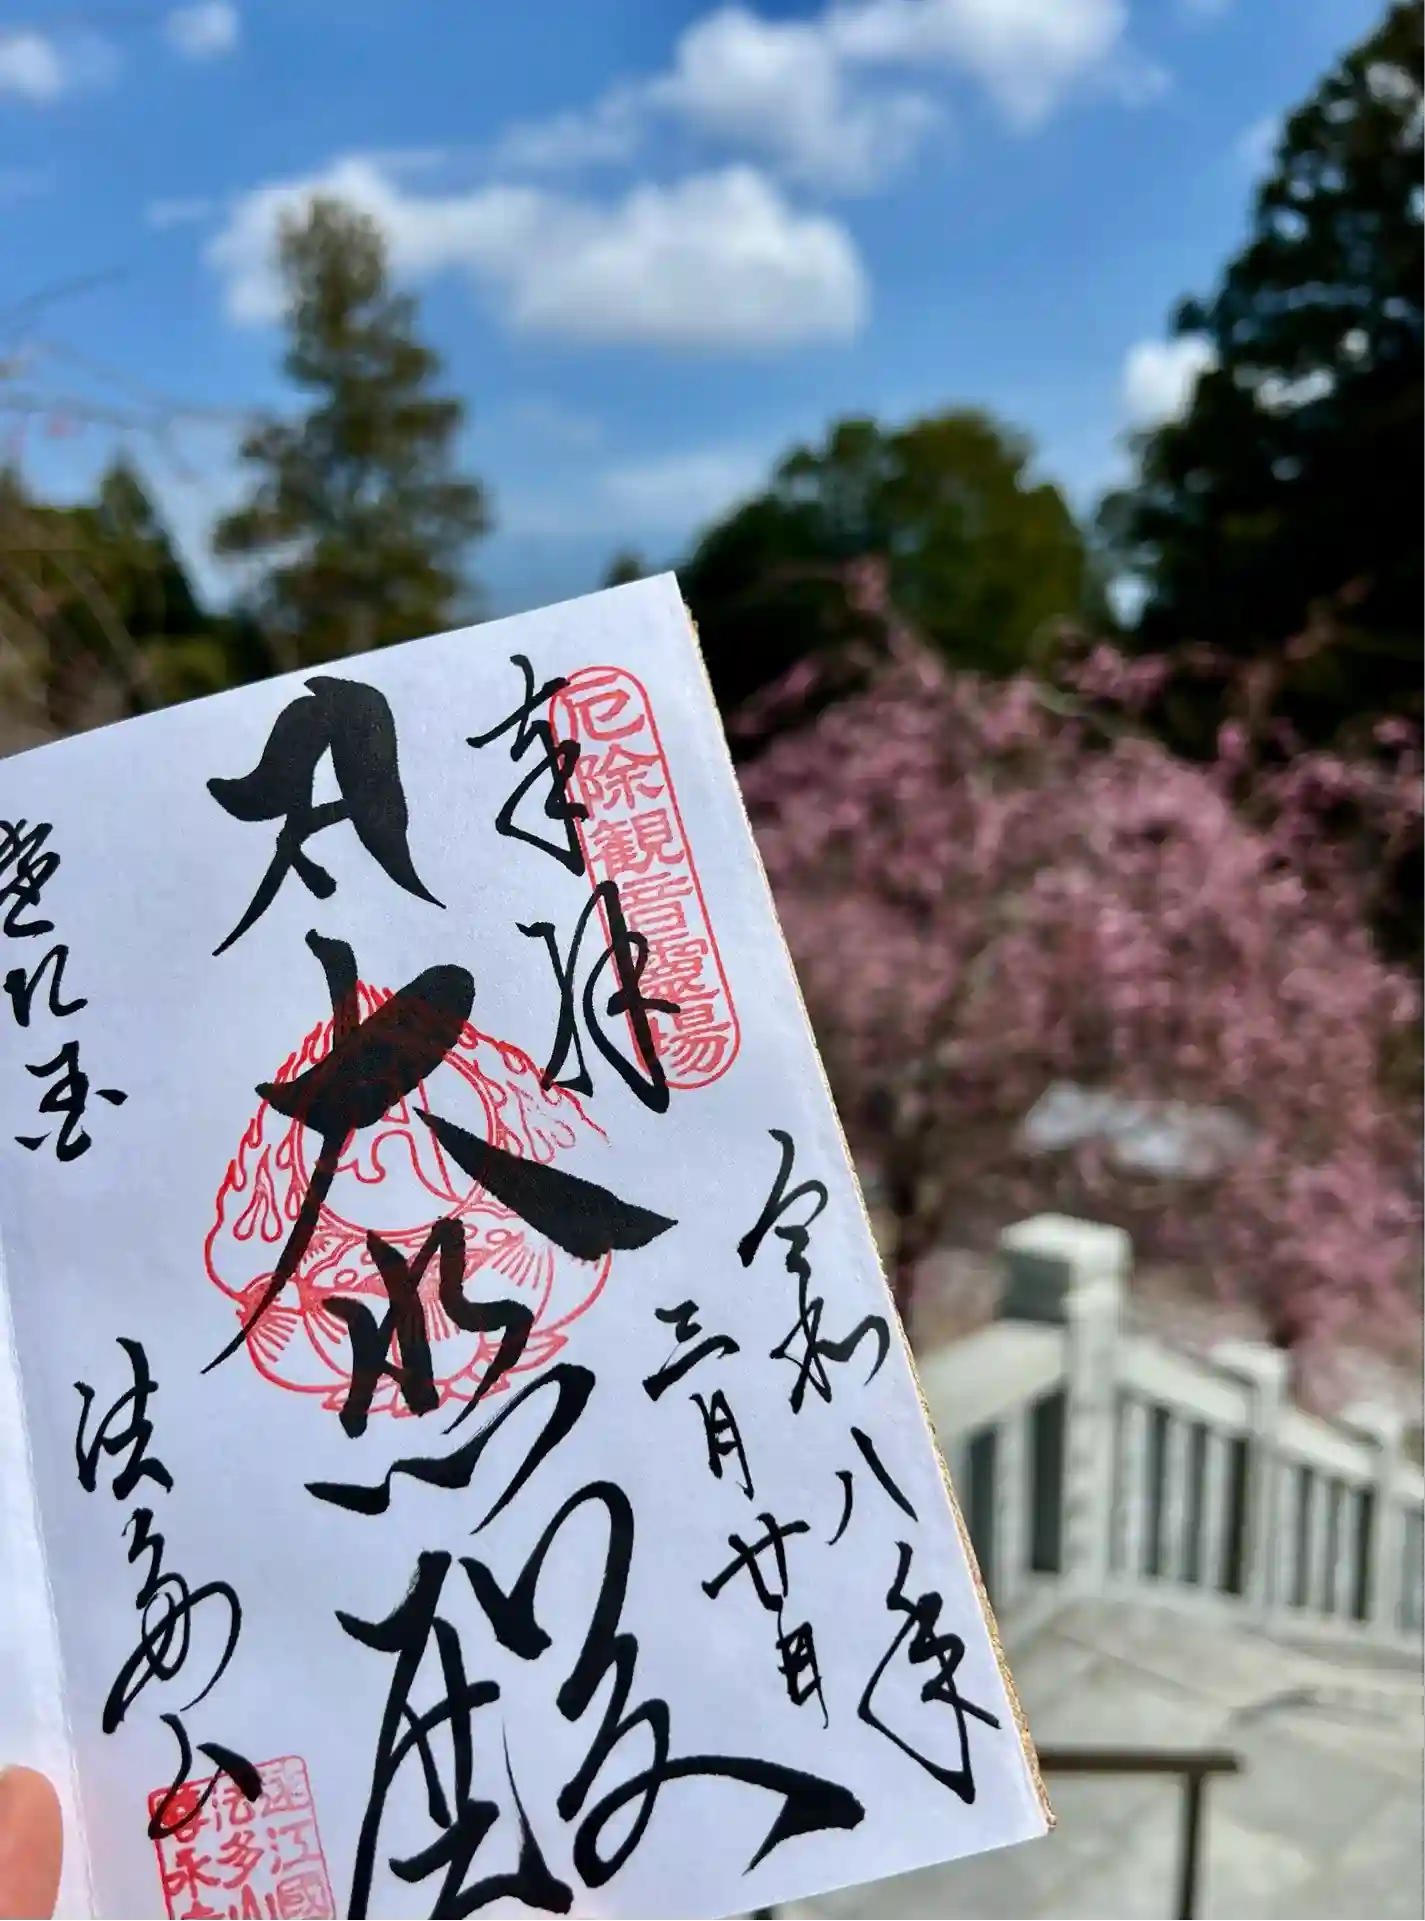 奉拝
厄除観音靈場
令和八年
三月廿日
大悲殿
遠江国
法多山
遠江國
法多山
尊永